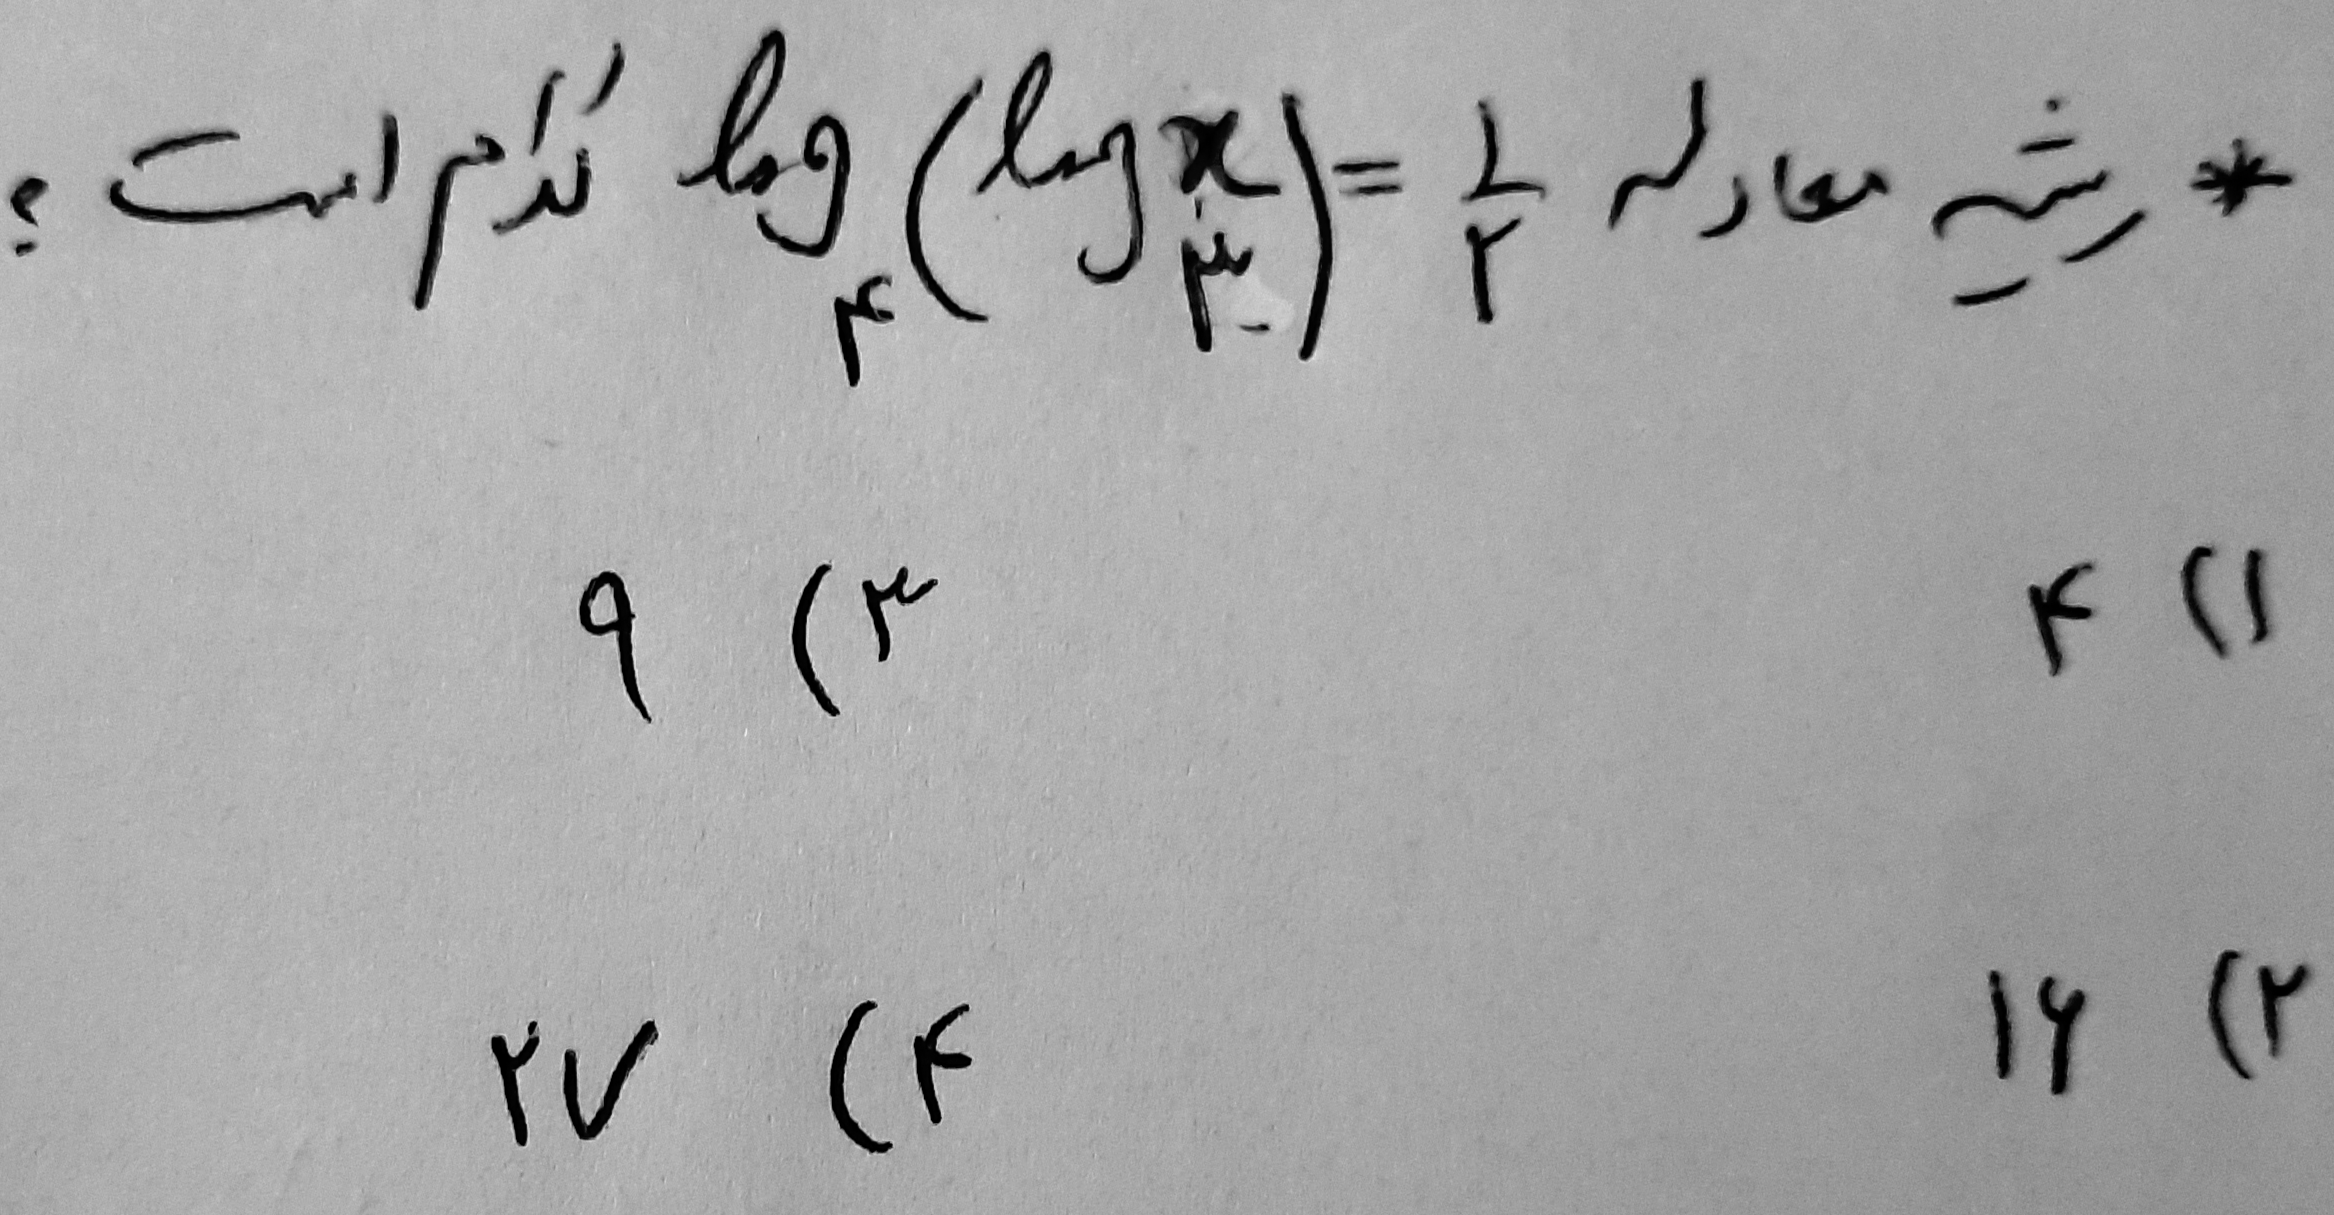 * ریشه معادله log_۴ (log_۳ x) = ۱/۲ کدام است ؟
۱) ۴ ۳) ۹
۲) ۱۶ ۴) ۲۷